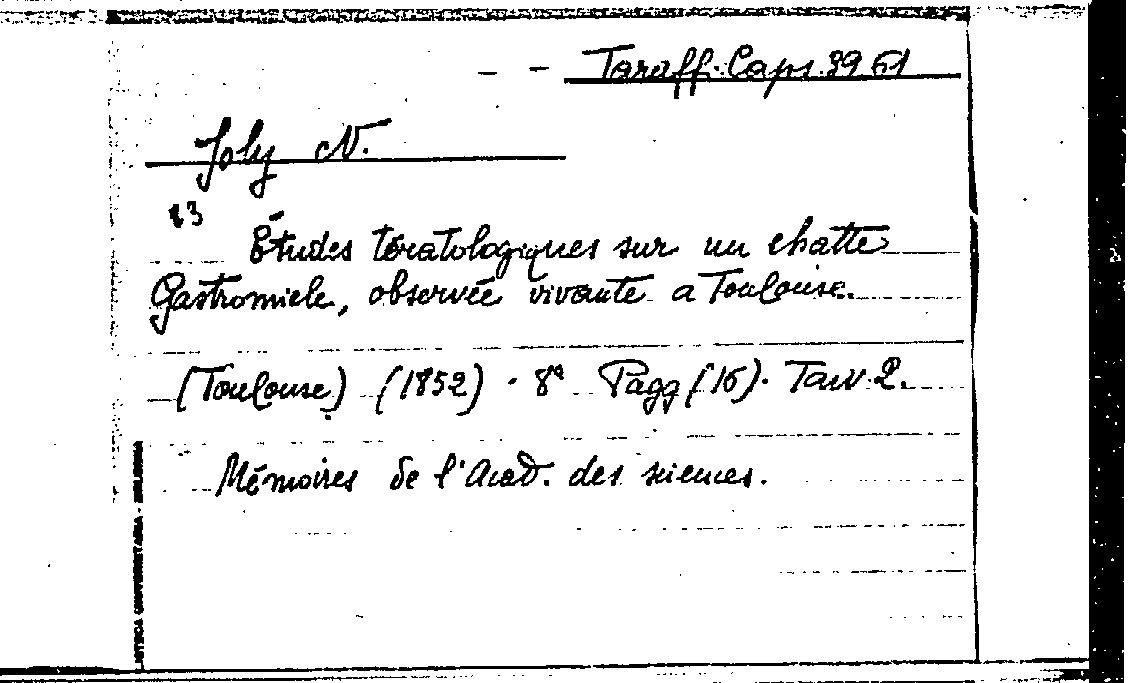 Taruffi. Caps. 39 61
Joly N.
23
Études tératologiques sur un chatte
Gastromiele, observée vivante a Toulouse.
(Toulouse) (1852) · 8º Pagg (16). Tav. 2.
Mémoires de l'Acad. des siences.
UNIVERSITARIA - BOLOGNA